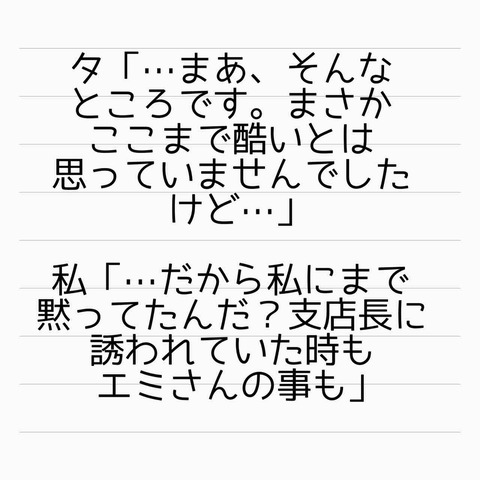 タ「…まあ、そんな
ところです。まさか
ここまで酷いとは
思っていませんでした
けど…」
私「…だから私にまで
黙ってたんだ？支店長に
誘われていた時も
エミさんの事も」